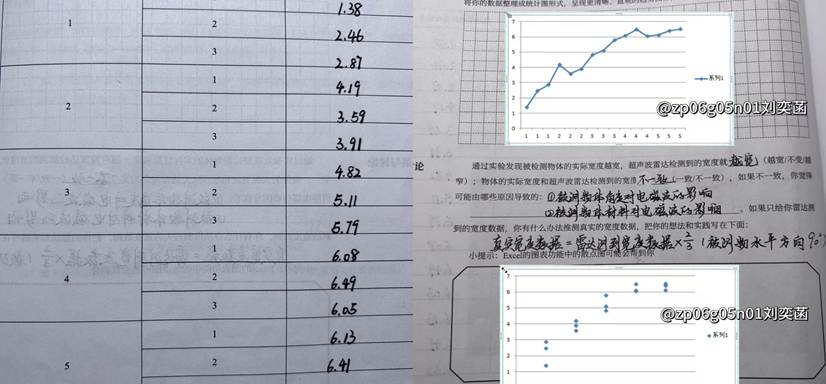 1.38
1
2
2.46
3
2.87
1
4.19
2
2
3.59
3
3.91
1
4.82
3
2
5.11
3
5.79
1
6.08
4
2
6.49
3
6.05
1
6.13
5
2
6.41
将你的数据整理成统计图形式，呈现更清晰、直观
7
6
5
4
3
2
1
0
1 1 1 2 2 2 3 3 3 4 4 4 5 5 5
系列1
@zp06g05n01刘奕菡
论
通过实验发现被检测物体的实际宽度越宽，超声波雷达检测到的宽度就越宽（越宽/不变/越
窄）；物体的实际宽度和超声波雷达检测到的宽度不一致（一致/不一致），如果不一致，你觉得
可能由哪些原因导致的：①被测物体角度对电磁波的影响
②被测物体材料对电磁波的影响。如果只给你雷达测
到的宽度数据，你有什么办法推测真实的宽度数据，把你的想法和实践写在下面：
真实宽度数据=雷达测到宽度数据×（被测物水平方向90°）
小提示：Excel的图表功能中的散点图可能会帮到你
7
6
5
4
3
2
1
系列1
@zp06g05n01刘奕菡